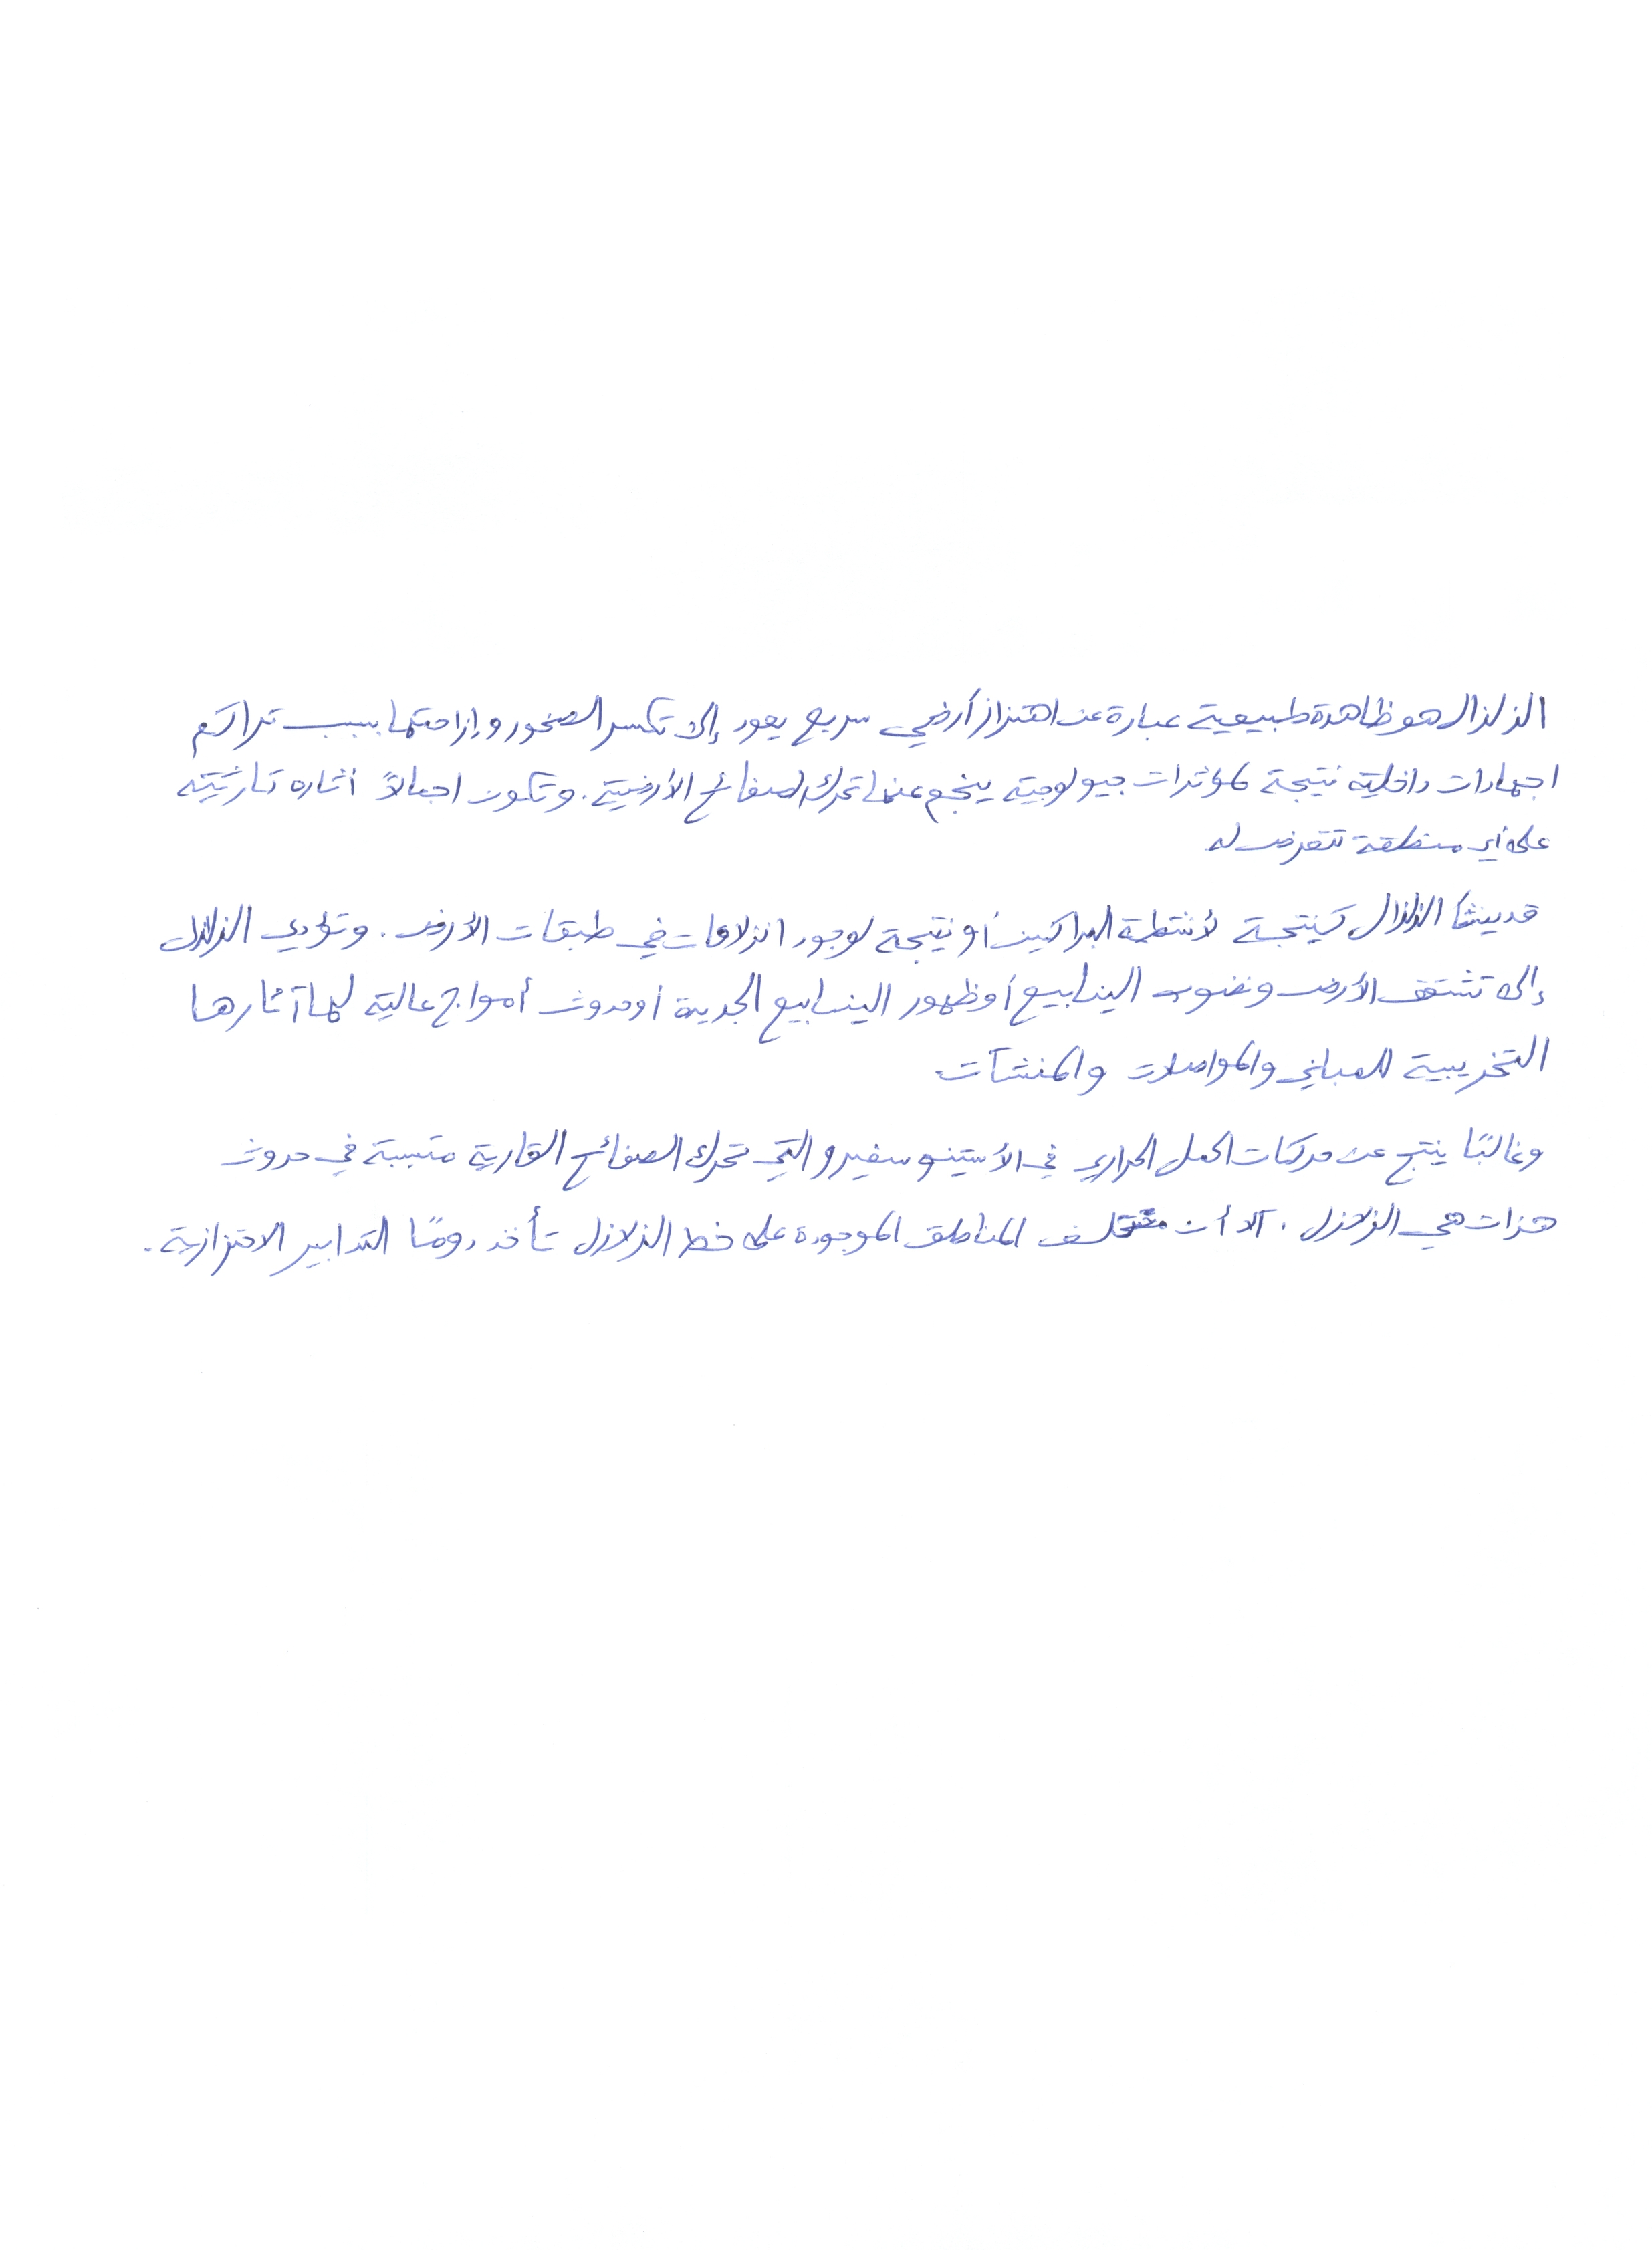 الزلزال هو ظاهرة طبيعية عبارة عن اهتزاز أرضي سريع يعود إلى تكسر الصخور وإزاحتها بسبب تراكم
اجهادات داخلية نتيجة لمؤثرات جيولوجية ينجم عنها تحرك الصفائح الأرضية. وتكون اجمالاً اثاره كارثية
على أي منطقة تتعرض له
قد ينشأ الزلزال كنتيجة لأنشطة البراكين أو نتيجة لوجود انزلاقات في طبقات الأرض. وتؤدي الزلازل
إلى تشقق الأرض ونضوب الينابيع أو ظهور الينابيع الجديدة أو حدوث أمواج عالية لها آثارها
التخريبية للمباني والمواصلات والمنشآت
وغالبًا ينتج عن حركات الحمل الحراري في الأستينوسفير والتي تحرك الصفائح القارية متسببة في حدوث
هزات هي الزلازل. ألا أن مختلف المناطق الموجودة على خط الزلازل تأخذ دومًا التدابير الاحترازية.